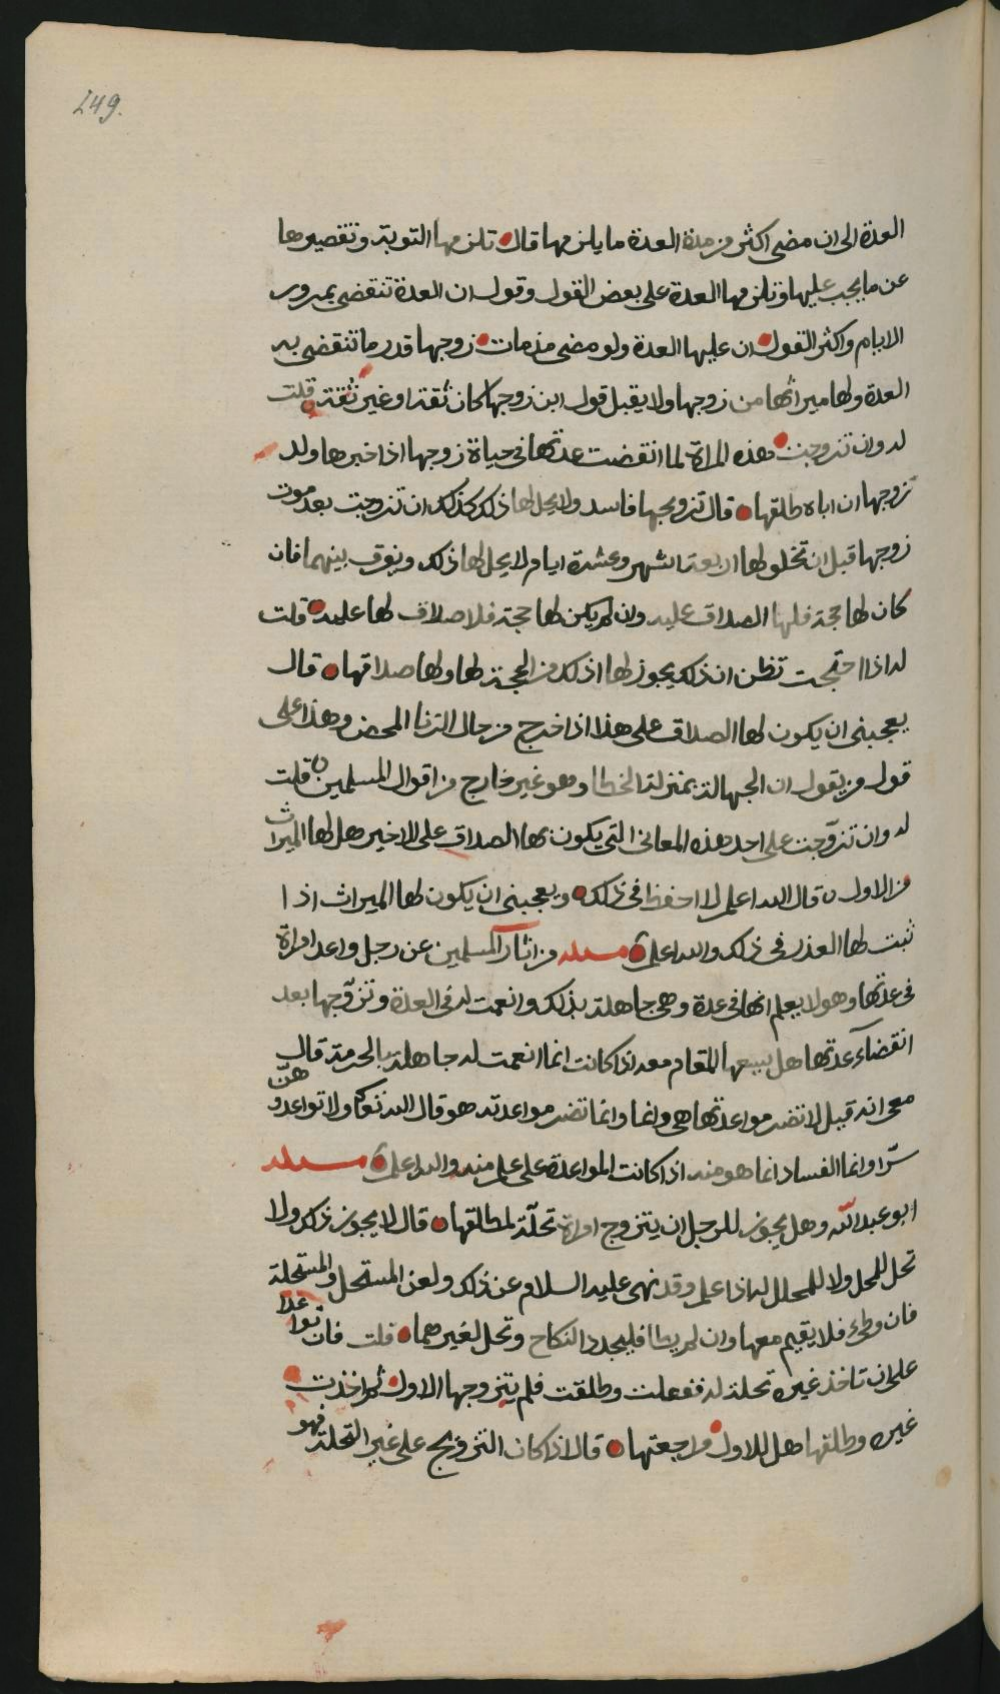 249.
العدة الى ان مضى اكثر من مدة العدة ما يلزمها قال تلزمها التوبة وتقصيرها
عن ما يجب عليها وتلزمها العدة على بعض القول وقول ان العدة تنقضي بمرور
الايام واكثر القول ان عليها العدة ولو مضى مذ مات زوجها قدر ما تنقضي به
العدة ولها ميراثها من زوجها ولا يقبل قول ابن زوجها كان ثقة او غير ثقة قلت
له وان تزوجت هذه المراة لما انقضت عدتها في حياة زوجها اذا خبرها ولد
زوجها ان اباه طلقها قال تزويجها فاسد ولا يحل لها ذلك كذلك ان تزوجت بعد موت
زوجها قبل ان تخلو لها اربعة اشهر وعشرة ايام لا يحل لها ذلك ويفرق بينهما فان
كان لها حجة فلها الصداق عليه وان لم يكن لها حجة فلا صداق لها عليه قلت
له اذا احتجت تظن ان ذلك يجوز لها اذلك من الحجة لها ولها صداقها قال
يعجبني ان يكون لها الصداق على هذا اذا خرج من حال الزنا المحض وهذا على
قول من يقول ان الجهالة بمنزلة الخطا وهو غير خارج من اقوال المسلمين قلت
له وان تزوّجت على احد هذه المعاني التي يكون بها الصداق على الاخير هل لها الميراث
من الاول قال الله اعلم لا احفظ في ذلك ويعجبني ان يكون لها الميراث اذا
ثبت لها العذر في ذلك والله اعلم مسئلة من اثار المسلمين عن رجل واعد امراة
في عدتها وهو لا يعلم انها في عدة وهي جاهلة بذلك وانعمت له في العدة وتزوّجها بعد
انقضآء عدتها هل يسعها المقام معه اذا كانت انما انعمت له جاهلة بالحرمة قال
معي انه قيل لا تضر مواعدتها هي وانما وانما تضر مواعدته هو قال الله تعالى ولا تواعدوهنّ
سرّا وانما الفساد انما هو منه اذا كانت المواعدة على علم منه والله اعلم مسئلة
ابو عبد الله وهل يجوز للرجل ان يتزوج امراة تحلّة لمطلقها قال لا يجوز ذلك ولا
تحل للمحل ولا للمحلل له اذا علم وقد نهى عليه السلام عن ذلك ولعن المستحل والمستحلة
فان وطىء فلا يقيم معها وان لم يطا فليجدد النكاح وتحل لغيرهما قلت فان تواعدا
على ان تاخذ غيره تحلة له ففعلت وطلقت فلم يتزوجها الاول ثم اخذت
غيره وطلقها هل للاول مراجعتها قال اذا كان التزويج على غير التحلة فهو